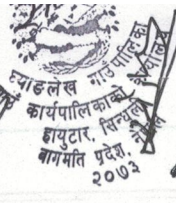 घ्याङलेख गाउँपालिका
कार्यपालिकाको कार्यालय
हायुटार, सिन्धुली
बागमती प्रदेश, नेपाल
२०७३